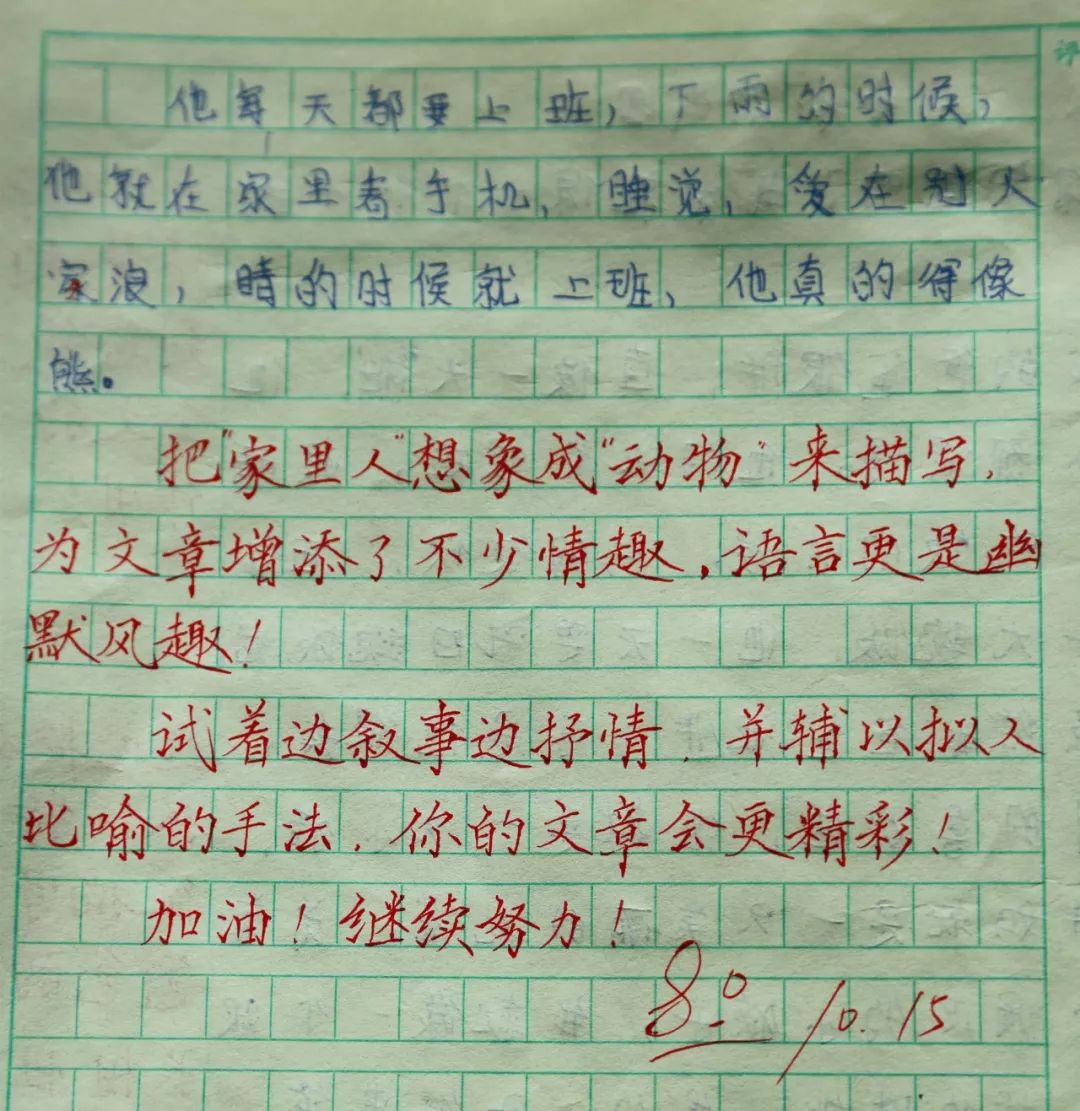 他每天都要上班，下雨的时候，
他就在家里看手机，睡觉，爱在别人
家浪，晴的时候就上班，他真的得像
熊。
把“家里人”想象成“动物”来描写，
为文章增添了不少情趣，语言更是幽
默风趣！
试着边叙事边抒情，并辅以拟人
比喻的手法，你的文章会更精彩！
加油！继续努力！
80 10.15